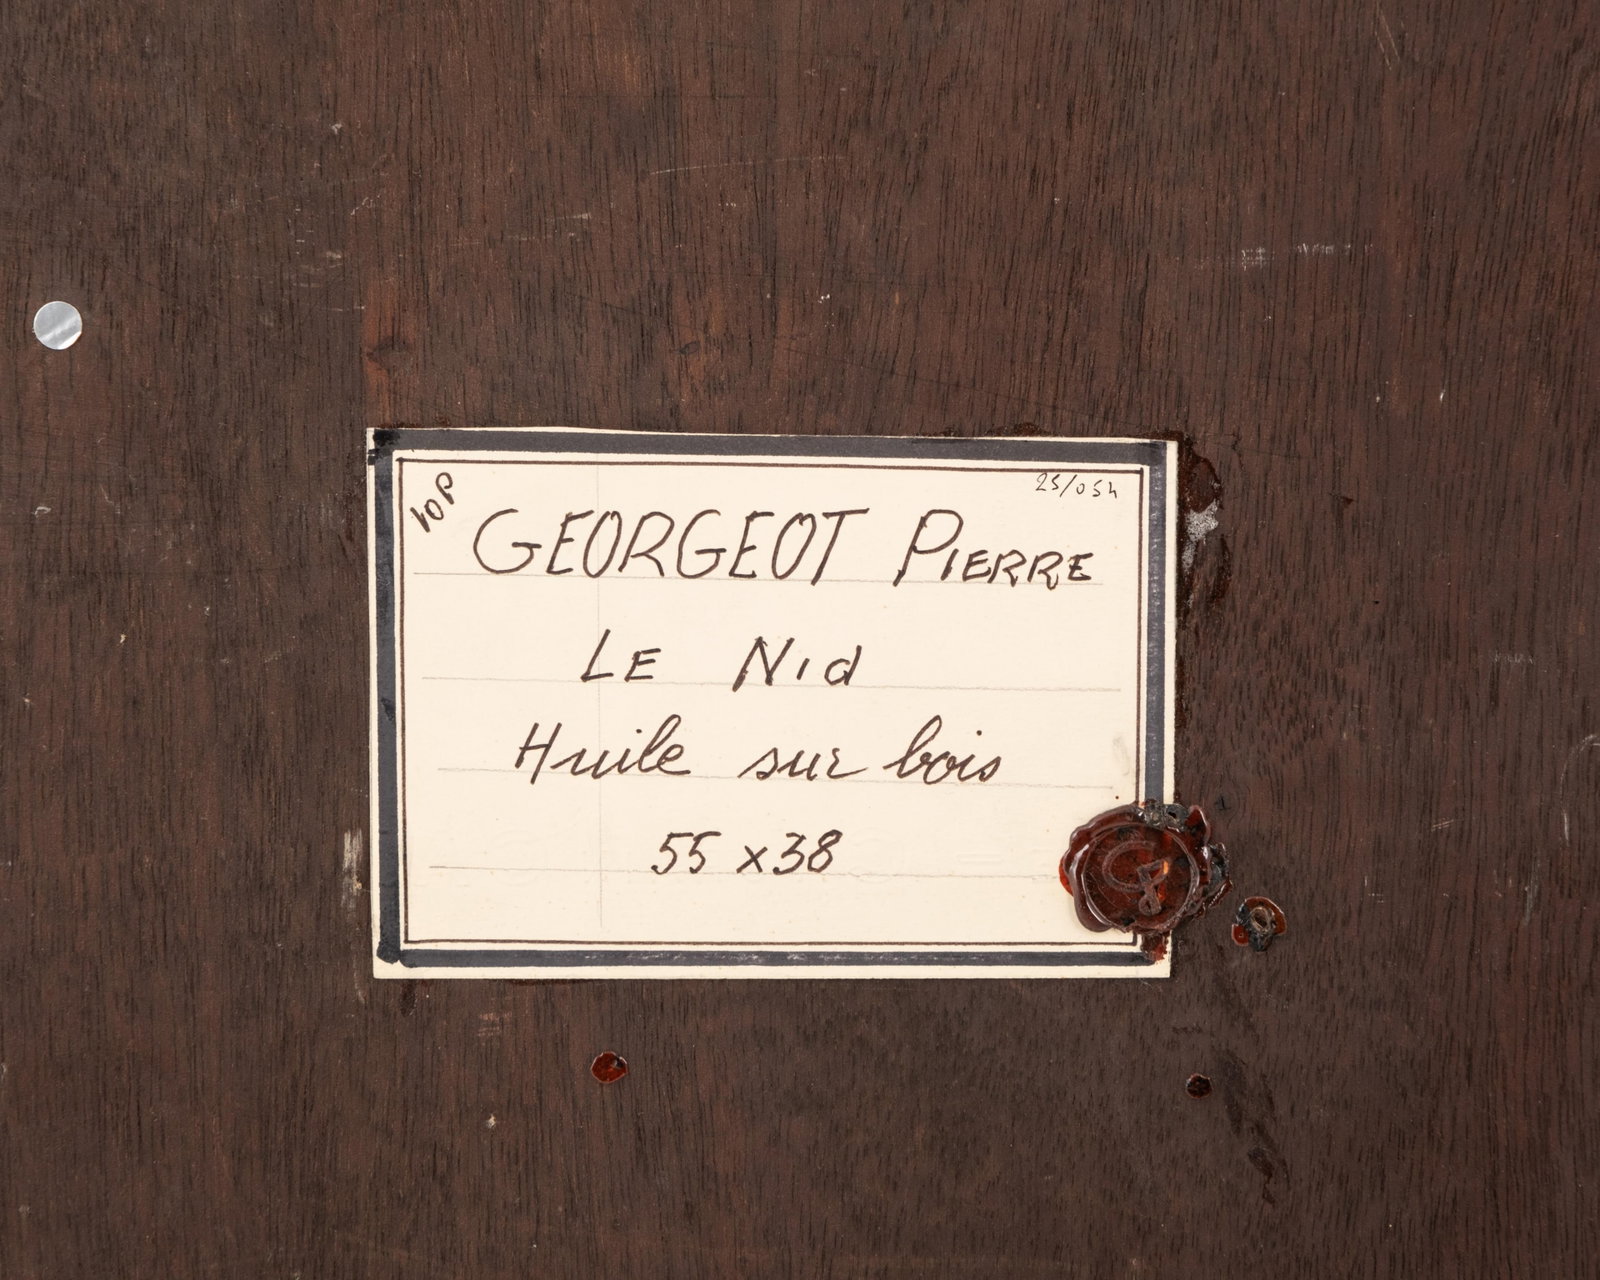 25/054
GEORGEOT PIERRE
LE Nid
Huile sur bois
55 x 38